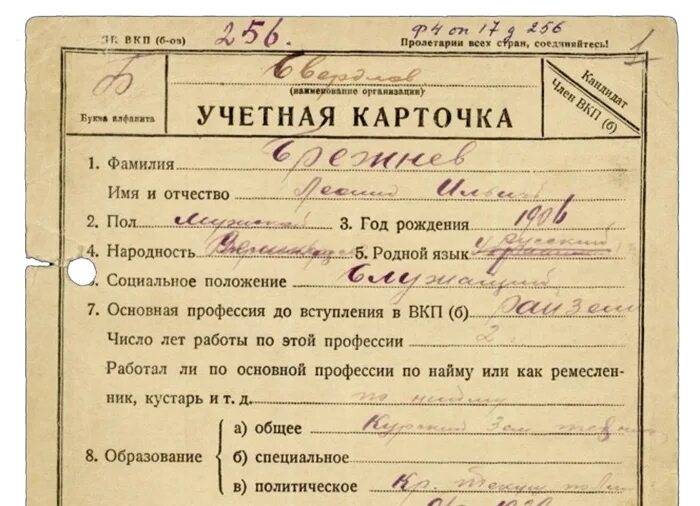 ЦК ВКП (б-ов) 256. Ф4 оп 17 д 256
Пролетарии всех стран, соединяйтесь!
1
Б Свердлов Кандидат
(наименование организации) Член ВКП (б)
Буква алфавита УЧЕТНАЯ КАРТОЧКА
1. Фамилия Брежнев
Имя и отчество Леонид Ильич
2. Пол Мужской 3. Год рождения 1906
4. Народность 5. Родной язык русский
6. Социальное положение Служащий
7. Основная профессия до вступления в ВКП (б)
Число лет работы по этой профессии 2
Работал ли по основной профессии по найму или как ремеслен-
ник, кустарь и т. д. по найму
а) общее Курский Зем
8. Образование б) специальное
в) политическое Кр.